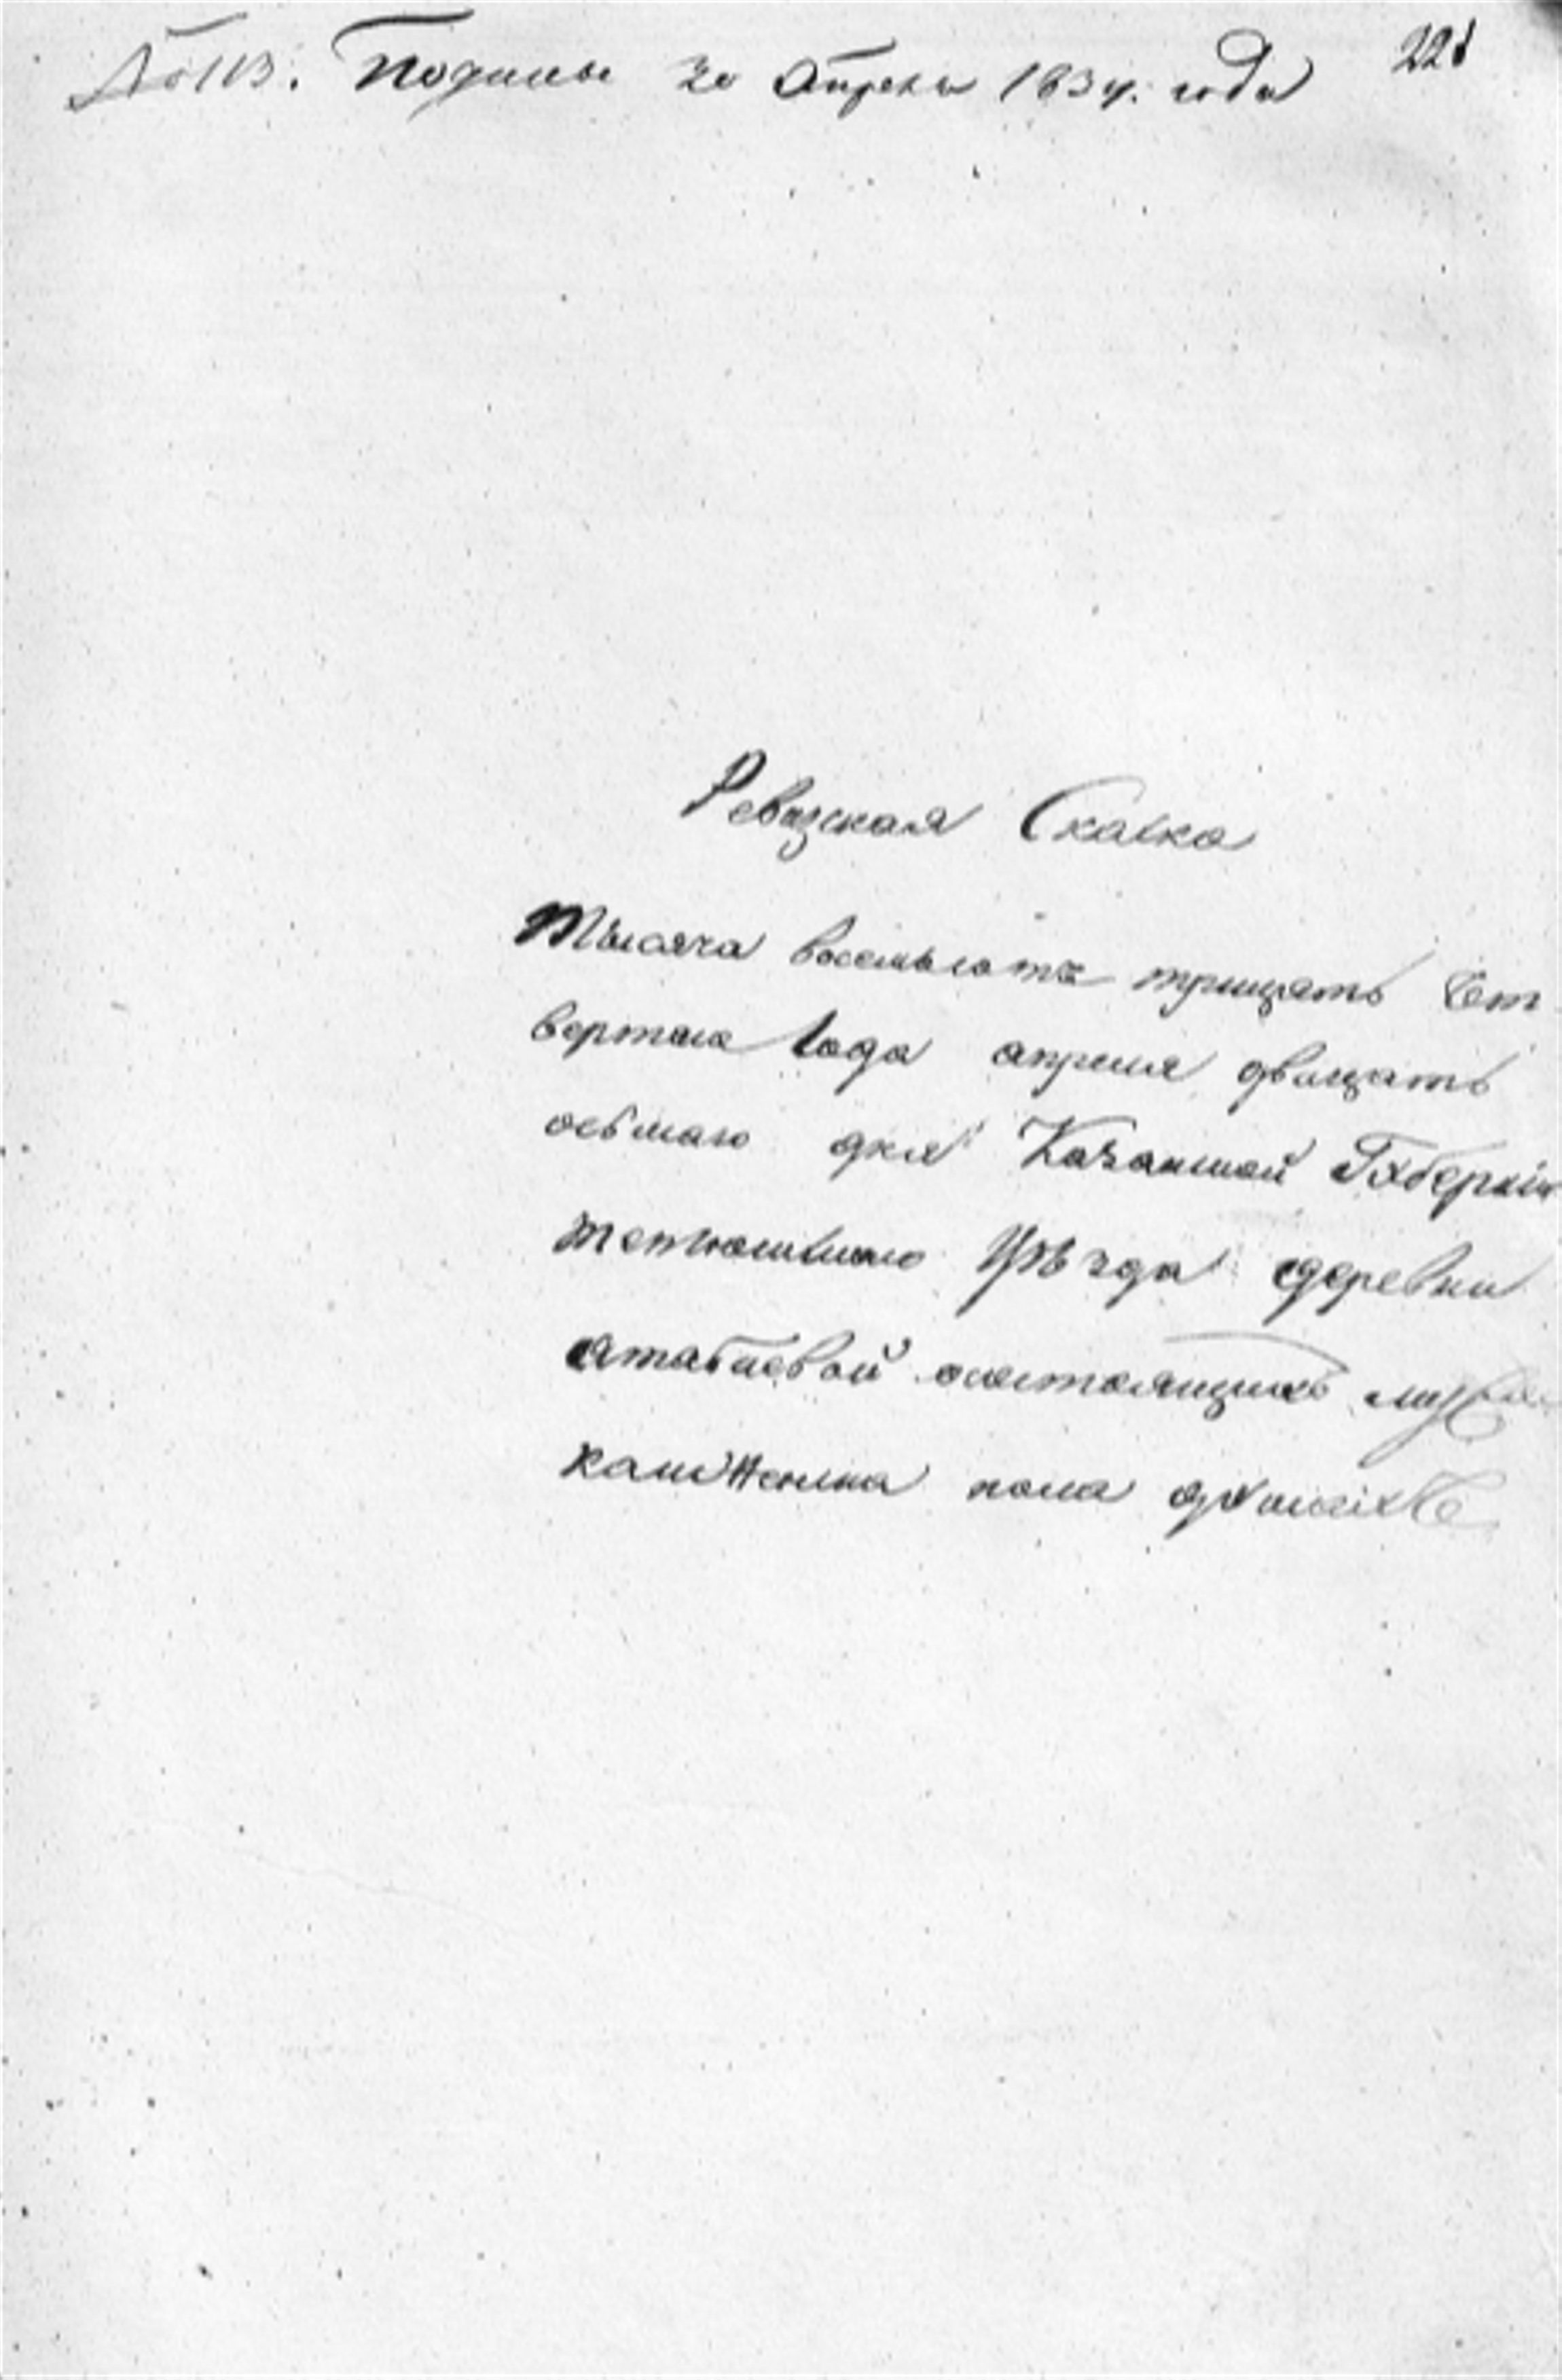 № 113. Подана 30 Апреля 1834. года 221
Ревизская Скаска
Тысяча восемьсотъ трицать чет
вертаго года апреля двацать
осьмаго дня Казанской Губерніи
тетюшскаго Уѣзда деревни
атабаевой осостоящихъ мужеска
и женска пола душахъ